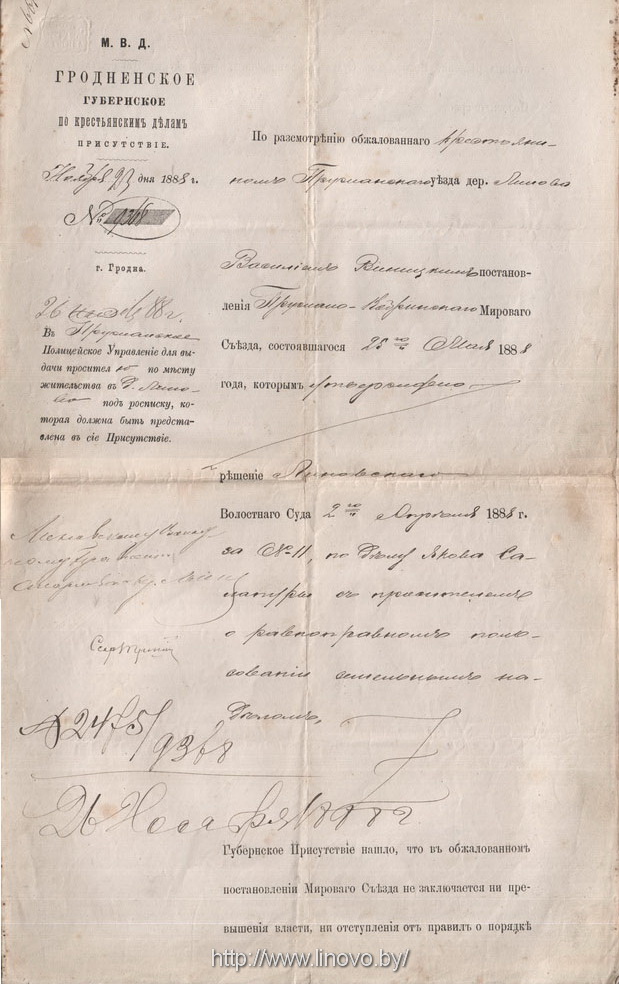 М. В. Д.
ГРОДНЕНСКОЕ
ГУБЕРНСКОЕ
по крестьянскимъ дѣламъ
ПРИСУТСТВІЕ.
Ноября дня 1888 г.
№ 9368
г. Гродна.
Въ Пружанское
Полицейское Управленіе для вы-
дачи просител ю по мѣсту
жительства въ д. Лино-
во подъ росписку, ко-
торая должна быть предста-
влена въ сіе Присутствіе.
2475/9368
26 Ноября 1888 г
По разсмотрѣнію обжалованнаго крестьяни-
номъ Пружанскаго уѣзда дер. Линова
Василіемъ Виницкимъ постанов-
ленія Пружано-Кобринскаго Мироваго
Съѣзда, состоявшагося 25 го Мая 1888
года, которымъ утверждено
рѣшеніе Линовскаго
Волостнаго Суда 2 го Апрѣля 1888 г.
за № 11, по дѣлу Якова Са-
съ просителемъ
о равноправномъ поль-
зованіи земельнымъ на-
дѣломъ,
Губернское Присутствіе нашло, что въ обжалованномъ
постановленіи Мироваго Съѣзда не заключается ни пре-
вышенія власти, ни отступленія отъ правилъ о порядкѣ
http://www.linovo.by/